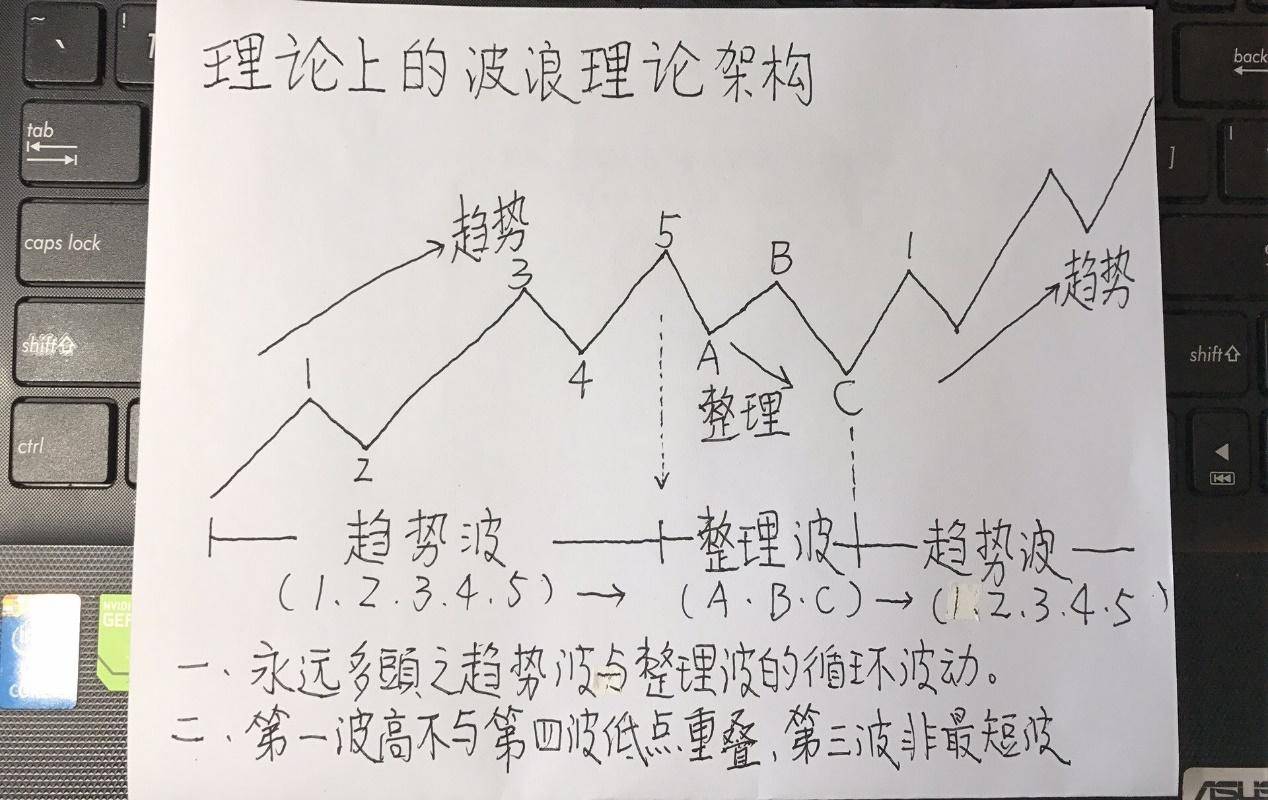 理论上的波浪理论架构
趋势
趋势
1
2
3
4
5
A
B
C
1
整理
趋势波
整理波
趋势波
(1.2.3.4.5) → (A.B.C) → (1.2.3.4.5)
一、永远多頭之趋势波与整理波的循环波动。
二、第一波高不与第四波低点重叠,第三波非最短波
~
、
!
tab
caps lock
shift
ctrl
back
]
shift
NVIDI
GEF
ASUS